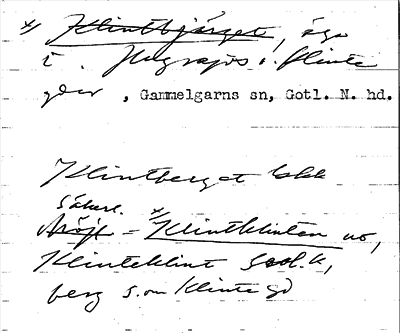 x) Klintbjärget, äga
t. Hugrajvs o. Klinte
gder , Gammelgarns sn, Gotl. N. hd.
Klintberget
säkerl.
= x) Klintklinten no,
Klinteklint Geol. k,
berg s. om Klinte gd